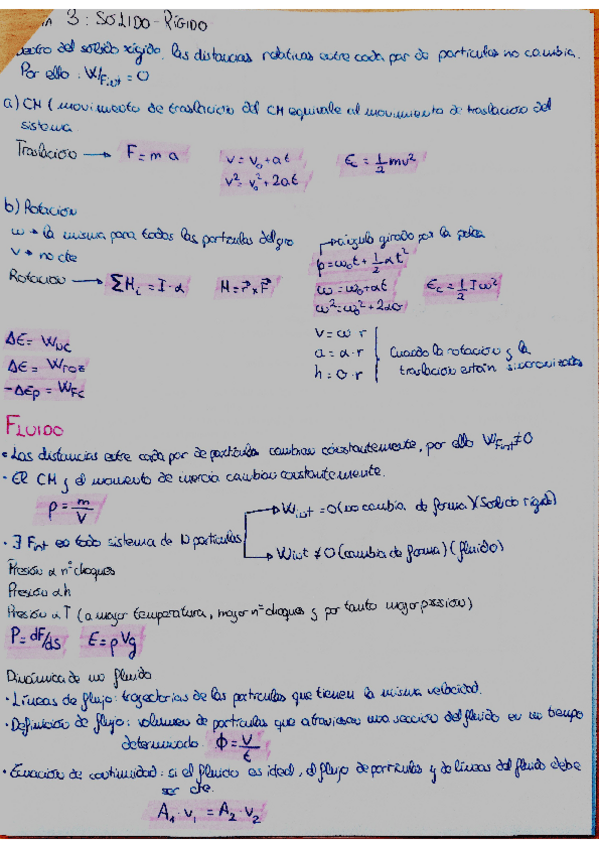 3: SÓLIDO-RÍGIDO
dentro del sólido rígido, las distancias relativas entre cada par de partículas no cambia.
Por ello: W/Fint = 0
a) CM (movimiento de traslación del CM equivale al movimiento de traslación del
sistema
Traslación → F = m a v = v₀ + at Ec = 1/2 mv²
v² = v₀² + 2at
b) Rotación
ω → la misma para todas las partículas del giro
v → no cte
ángulo girado por la polea
φ = ω₀t + 1/2 αt²
Rotación → ΣMi = I·α M = r⃗ x F⃗ ω = ω₀ + αt Ec = 1/2 Iω²
ω² = ω₀² + 2αθ
ΔE = WNC
ΔE = WTOT
-ΔEp = WFC
v = ω·r
a = α·r
h = θ·r
Cuando la rotación y la
traslación están sincronizadas
FLUIDO
• Las distancias entre cada par de partículas cambian constantemente, por ello WFint ≠ 0
• El CM y el momento de inercia cambian constantemente.
ρ = m/V
• ∃ Fint en todo sistema de N partículas
→ Wint = 0 (no cambia de forma) (Sólido rígido)
→ Wint ≠ 0 (cambia de forma) (fluido)
Presión α nº choques
Presión α h
Presión α T (a mayor temperatura, mayor nº choques y por tanto mayor presión)
P = dF/ds E = ρVg
Dinámica de un fluido
• Líneas de flujo: trayectorias de las partículas que tienen la misma velocidad.
• Definición de flujo: volumen de partículas que atraviesan una sección del fluido en un tiempo
determinado Φ = V/t
• Ecuación de continuidad: si el fluido es ideal, el flujo de partículas y de líneas del fluido debe
ser cte.
A₁·v₁ = A₂·v₂